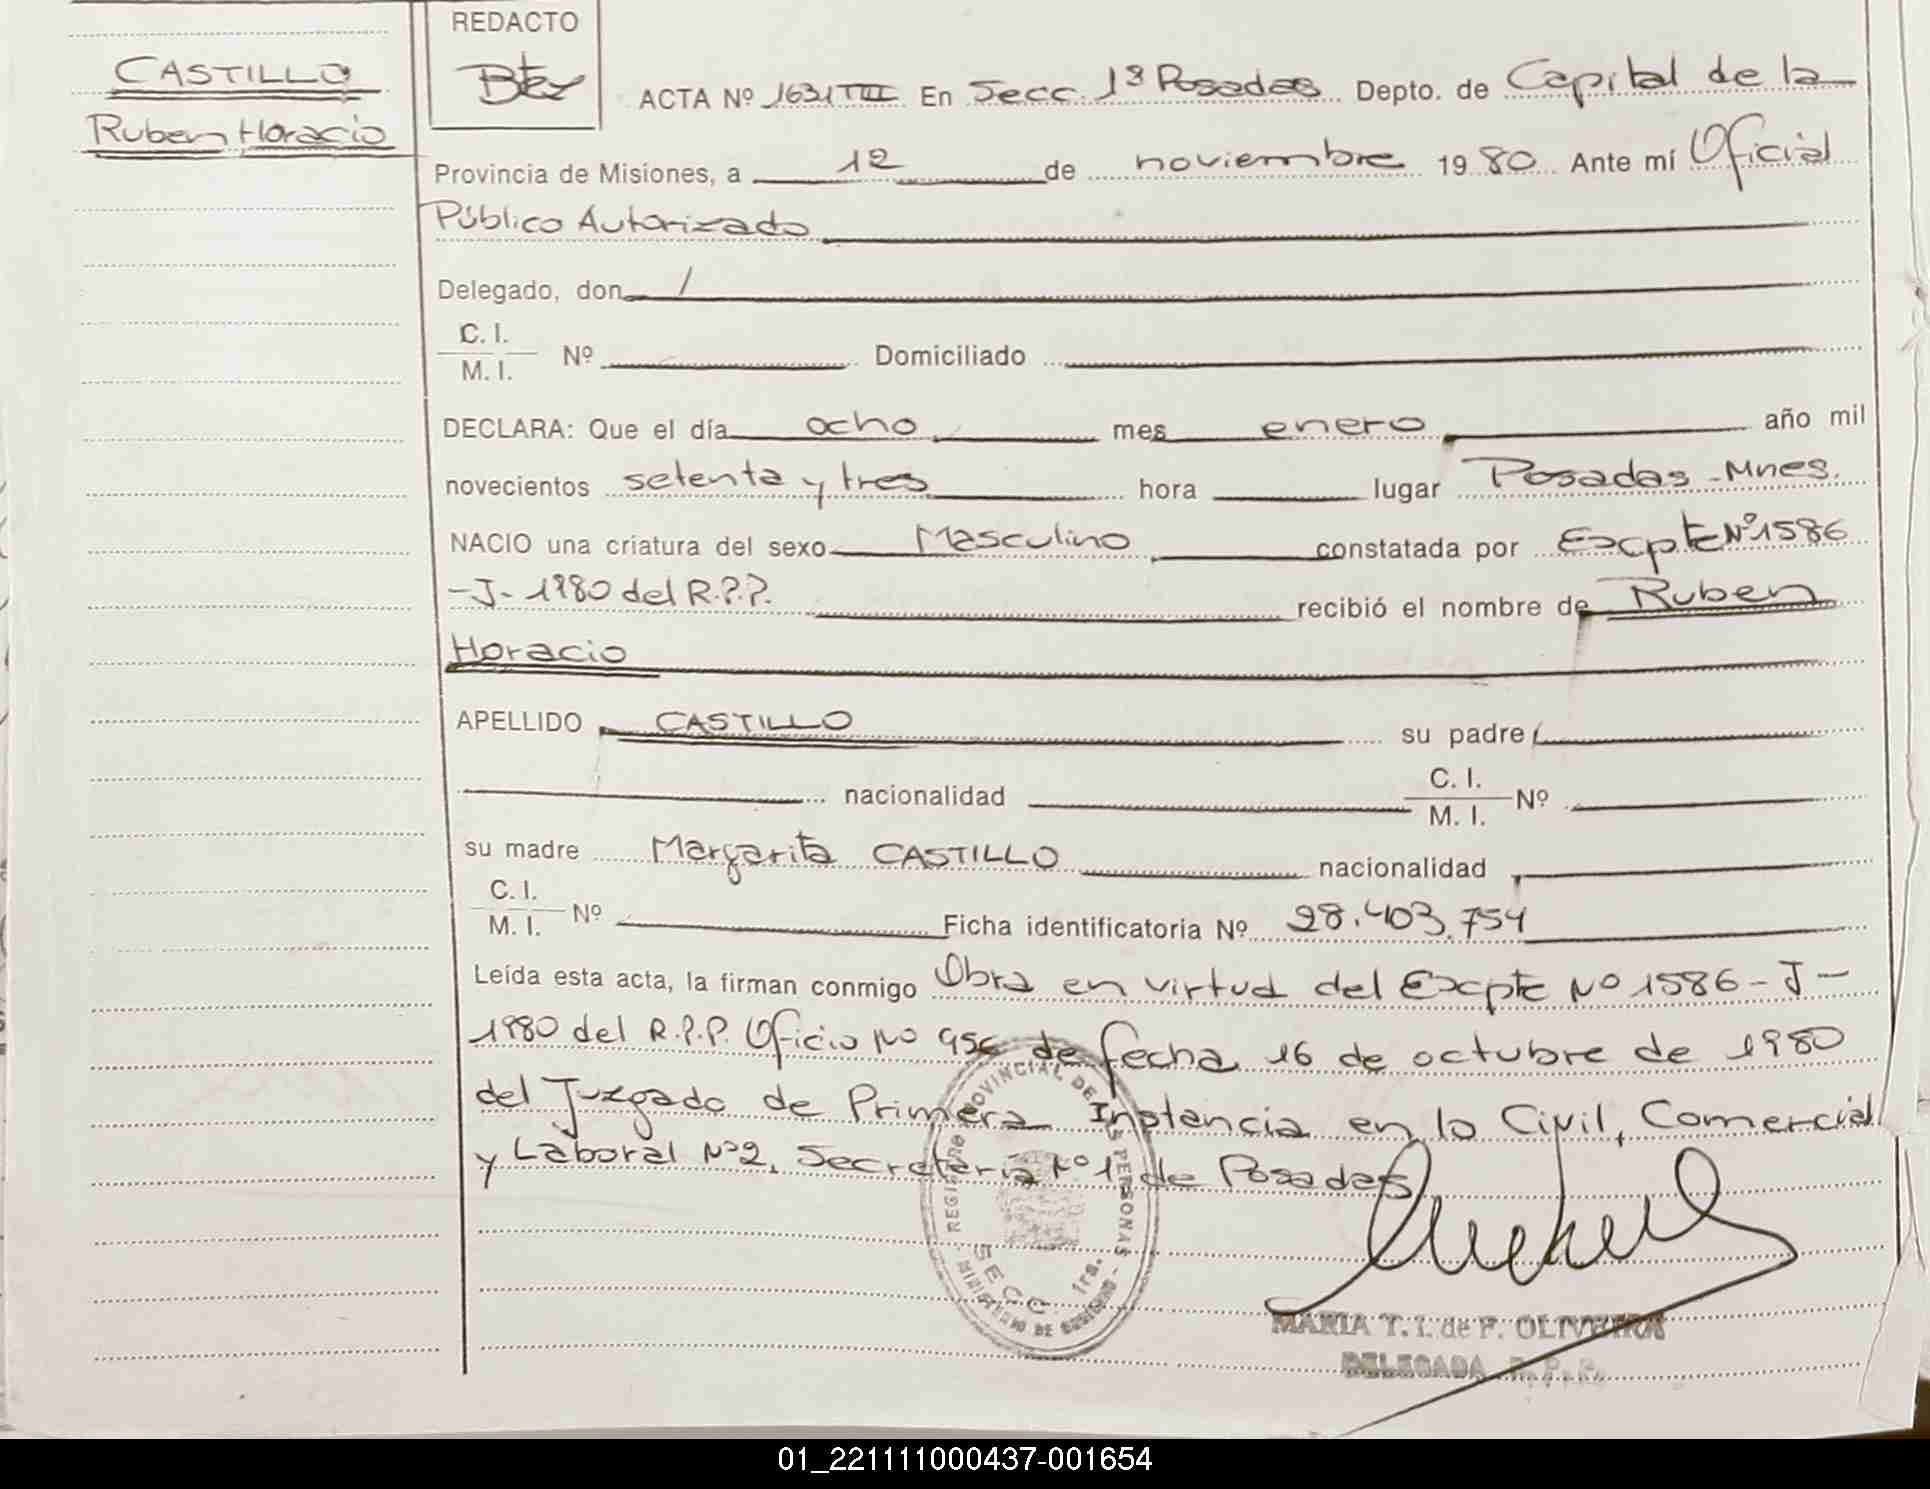 CASTILLO
Ruben Horacio
REDACTO
ACTA Nº 1631 TIII En Secc. 1ª Posadas Depto. de Capital de la
Provincia de Misiones, a 12 de noviembre 1980 Ante mí Oficial
Público Autorizado
Delegado, don /
C. I.
M. I. Nº Domiciliado
DECLARA: Que el día ocho mes enero año mil
novecientos setenta y tres hora lugar Posadas - Mnes.
NACIO una criatura del sexo Masculino constatada por Excpte Nº 1586
-J- 1980 del R.P.P. recibió el nombre de Ruben
Horacio
APELLIDO CASTILLO su padre
nacionalidad C. I.
M. I. Nº
su madre Margarita CASTILLO nacionalidad
C. I.
M. I. Nº Ficha identificatoria Nº 28.403.754
Leída esta acta, la firman conmigo Obra en virtud del Excpte Nº 1586 - J -
1980 del R.P.P. Oficio Nº de fecha 16 de octubre de 1980
del Juzgado de Primera Instancia en lo Civil, Comercial
y Laboral Nº 2, Secretería Nº 1 de Posadas
REGISTRO PROVINCIAL DE LAS PERSONAS
SECC. 1ra.
MINISTERIO DE GOBIERNO
MARIA T. I. de F. OLIVEIRA
DELEGADA R.P.P.
01_221111000437-001654